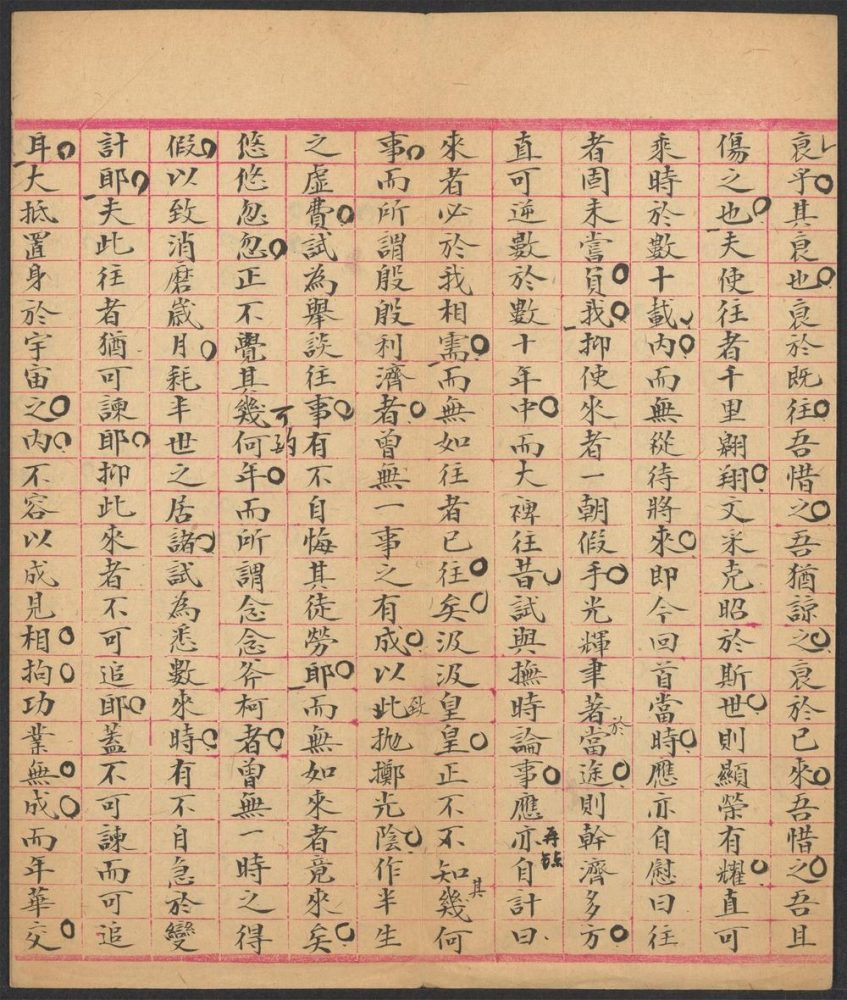 衰乎其衰也衰於既往吾惜之吾猶諒之衰於已來吾惜之吾且
傷之也夫使往者千里翱翔文采克昭於斯世則顯榮有耀直可
乘時於數十載內而無從待將來即今回首當時應亦自慰曰往
者固未嘗負我抑使來者一朝假手光輝聿著於當途則幹濟多方
直可逆數於數十年中而大裨往昔試與撫時論事應亦自計曰
來者必於我相需而無如往者已往矣汲汲皇皇正不不知其幾何
事而所謂殷殷利濟者曾無一事之有成以此致拋擲光陰作半生
之虛費試為舉談往事有不自悔其徒勞耶而無如來者竟來矣
悠悠忽忽正不覺其幾何年而所謂念念斧柯者曾無一時之得
可酌
假以致消磨歲月耗半世之居諸試為悉數來時有不自急於變
計耶夫此往者猶可諫耶抑此來者不可追耶蓋不可諫而可追
耳大抵置身於宇宙之內不容以成見相拘功業無成而年華交